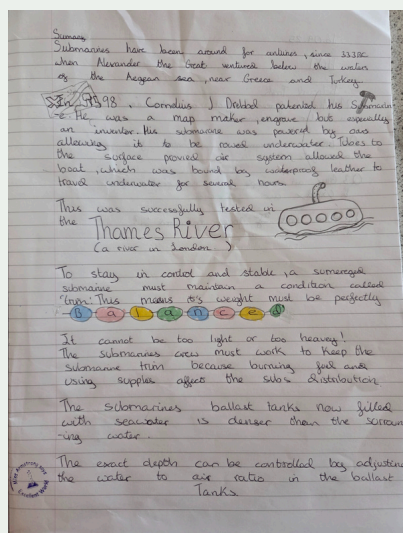 Sumary
Submarines have been around for antines, since 333BC
when Alexander the Great ventured below the waters
of the Aegean sea, near Greece and Turkey.
In 1598, Cornelius J Drebbal patented his Submarin
-e. He was a map maker, engrave, but especially
an inventor. His submarine was powered by oars
allowing it to be rowed underwater. Tubes to
the surface provied air system allowed the
boat, which was bound by waterproof leather to
travel underwater for several hours.
This was successfully tested in
the Thames River
(a river in London.)
To stay in control and stable, a sumerged
submarine must maintain a condition called
'trim'. This means it's weight must be perfectly
Balanced
It cannot be too light or too heavy!
The submarines crew must work to keep the
submarine trim because burning fuel and
using supples affect the subs distribution
The submarines ballast tanks now filled
with seawater is denser than the surroun
-ing water.
The exact depth can be controlled by adjusting
the water to air ratio in the ballast
Tanks.
Excellent Work